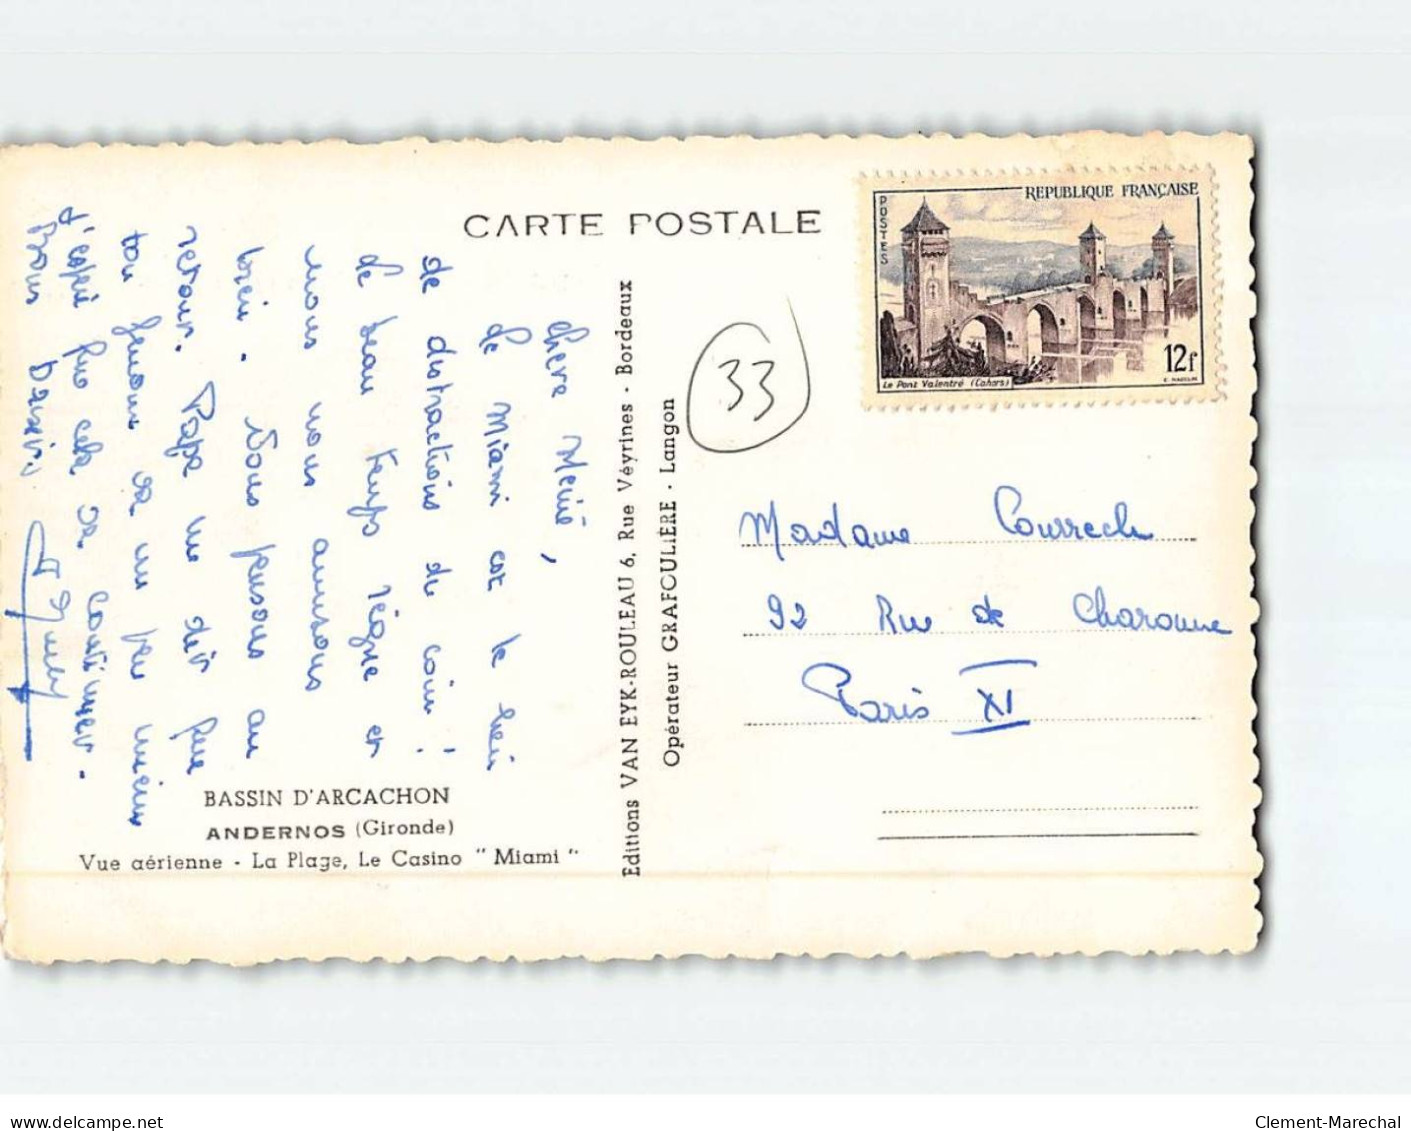 CARTE POSTALE
REPUBLIQUE FRANÇAISE
POSTES
12f
Le Pont Valentré (Cahors)
33
chère Mémé,
Le Miami est le lieu
de distractions du coin !
Le beau temps règne et
nous nous amusons
bien. Nous pensons au
retour. Papa me dit que
ton genou va un peu mieux
j'espère que cela va continuer.
Bons baisers
Editions VAN EYK-ROULEAU 6, Rue Véyrines - Bordeaux
Opérateur GRAFOULIÈRE - Langon
Madame Courrech
92 Rue de Charonne
Paris XI
BASSIN D'ARCACHON
ANDERNOS (Gironde)
Vue aérienne - La Plage, Le Casino "Miami"
delcampe.net
Clement-Marechal